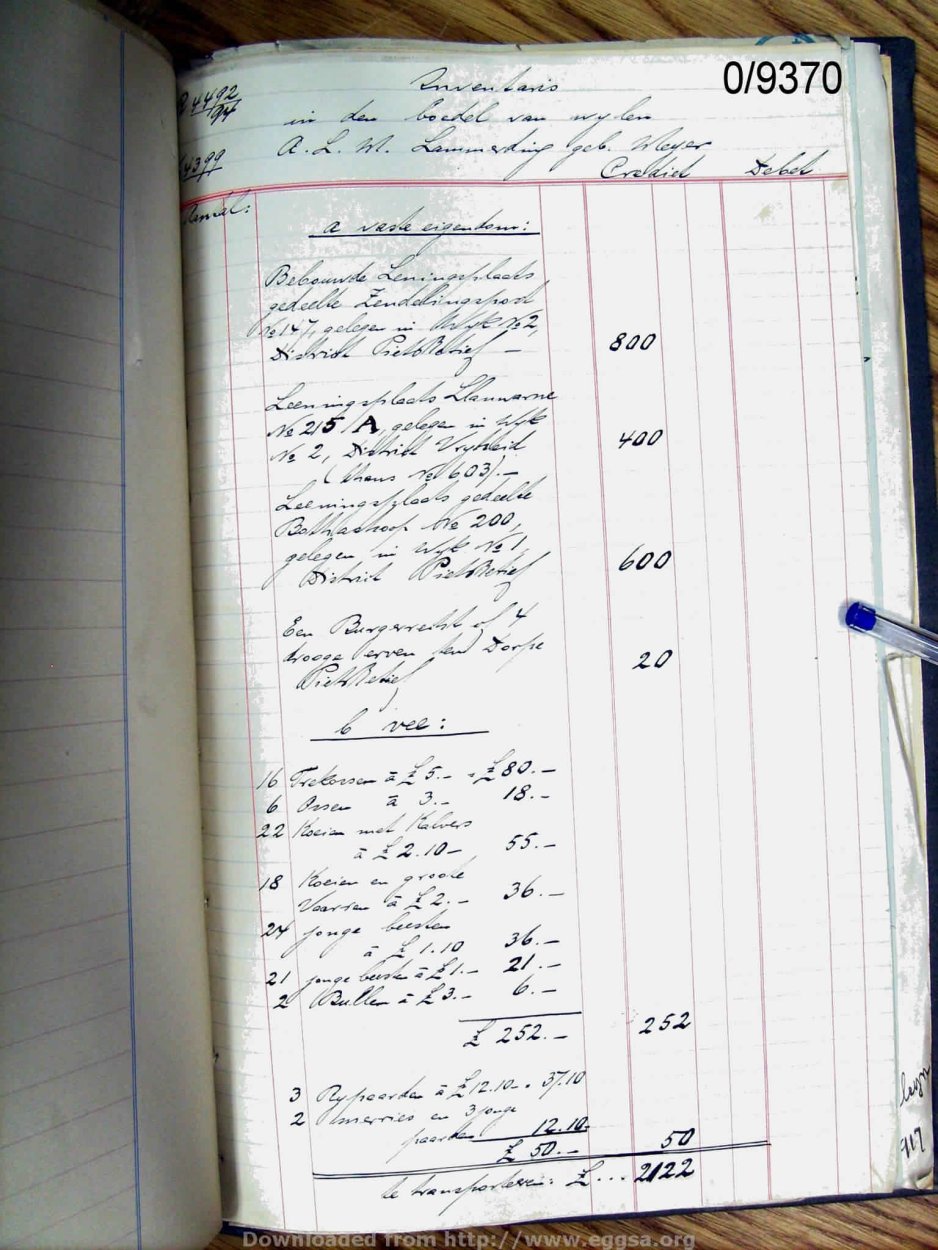 0/9370
4492/94
4399
Inventaris
in den boedel van wylen
A. L. M. Lammerding geb. Meyer
Credict Debet
Aantal:
a vaste eigendom:
Bebouwde Leeningsplaats
gedeelte Zendelingspost
No 147, gelegen in Wyk No 2,
District Piet Retief – 800
Leeningsplaats Llanwarne
No 215 A, gelegen in Wyk
No 2, District Vryheid 400
(thans No 603).–
Leeningsplaats gedeelte
Bothashoop No 200,
gelegen in Wyk No 1,
District Piet Retief 600
Een Burgerrecht of 4
drooge erven Dorpe 20
Piet Retief
b vee:
16 Trekossen à £5.– = £80.–
6 Ossen à 3.– 18.–
22 Koeien met Kalvers
à £2.10– 55.–
18 Koeien en groote
Vaarsen à £2.– 36.–
24 jonge beesten
à £1.10 36.–
21 jonge beesten à £1.– 21.–
2 Bullen à £3.– 6.–
£252.– 252
3 Rypaarden à £12.10– = 37.10
2 merries en 3 jonge
paarden 12.10.
£50.– 50
te transporteren: £ ... 2122
917
Downloaded from http://www.eggsa.org